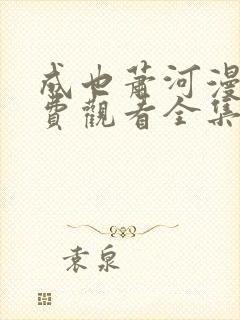 成也蕭河漫
費觀看全集
袁泉